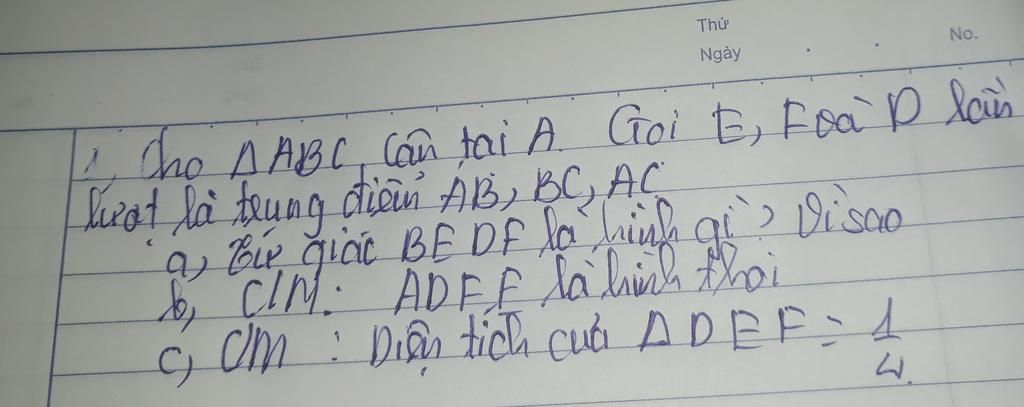 Thứ
Ngày
No.
1, Cho ΔABC, Cân tại A. Gọi E, F và D lần
lượt là trung điểm AB, BC, AC
a, Tứ giác BEDF là hình gì? Vì sao
b, C/M: ADFE là hình thoi
c, C/M: Diện tích của ΔDEF = 1/4.